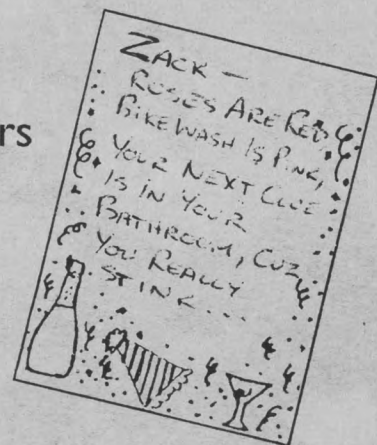 rs
ZACK —
ROSES ARE RED,
BIKE WASH IS PINK,
YOUR NEXT CLUE
IS IN YOUR
BATHROOM, CUZ
YOU REALLY
STINK...